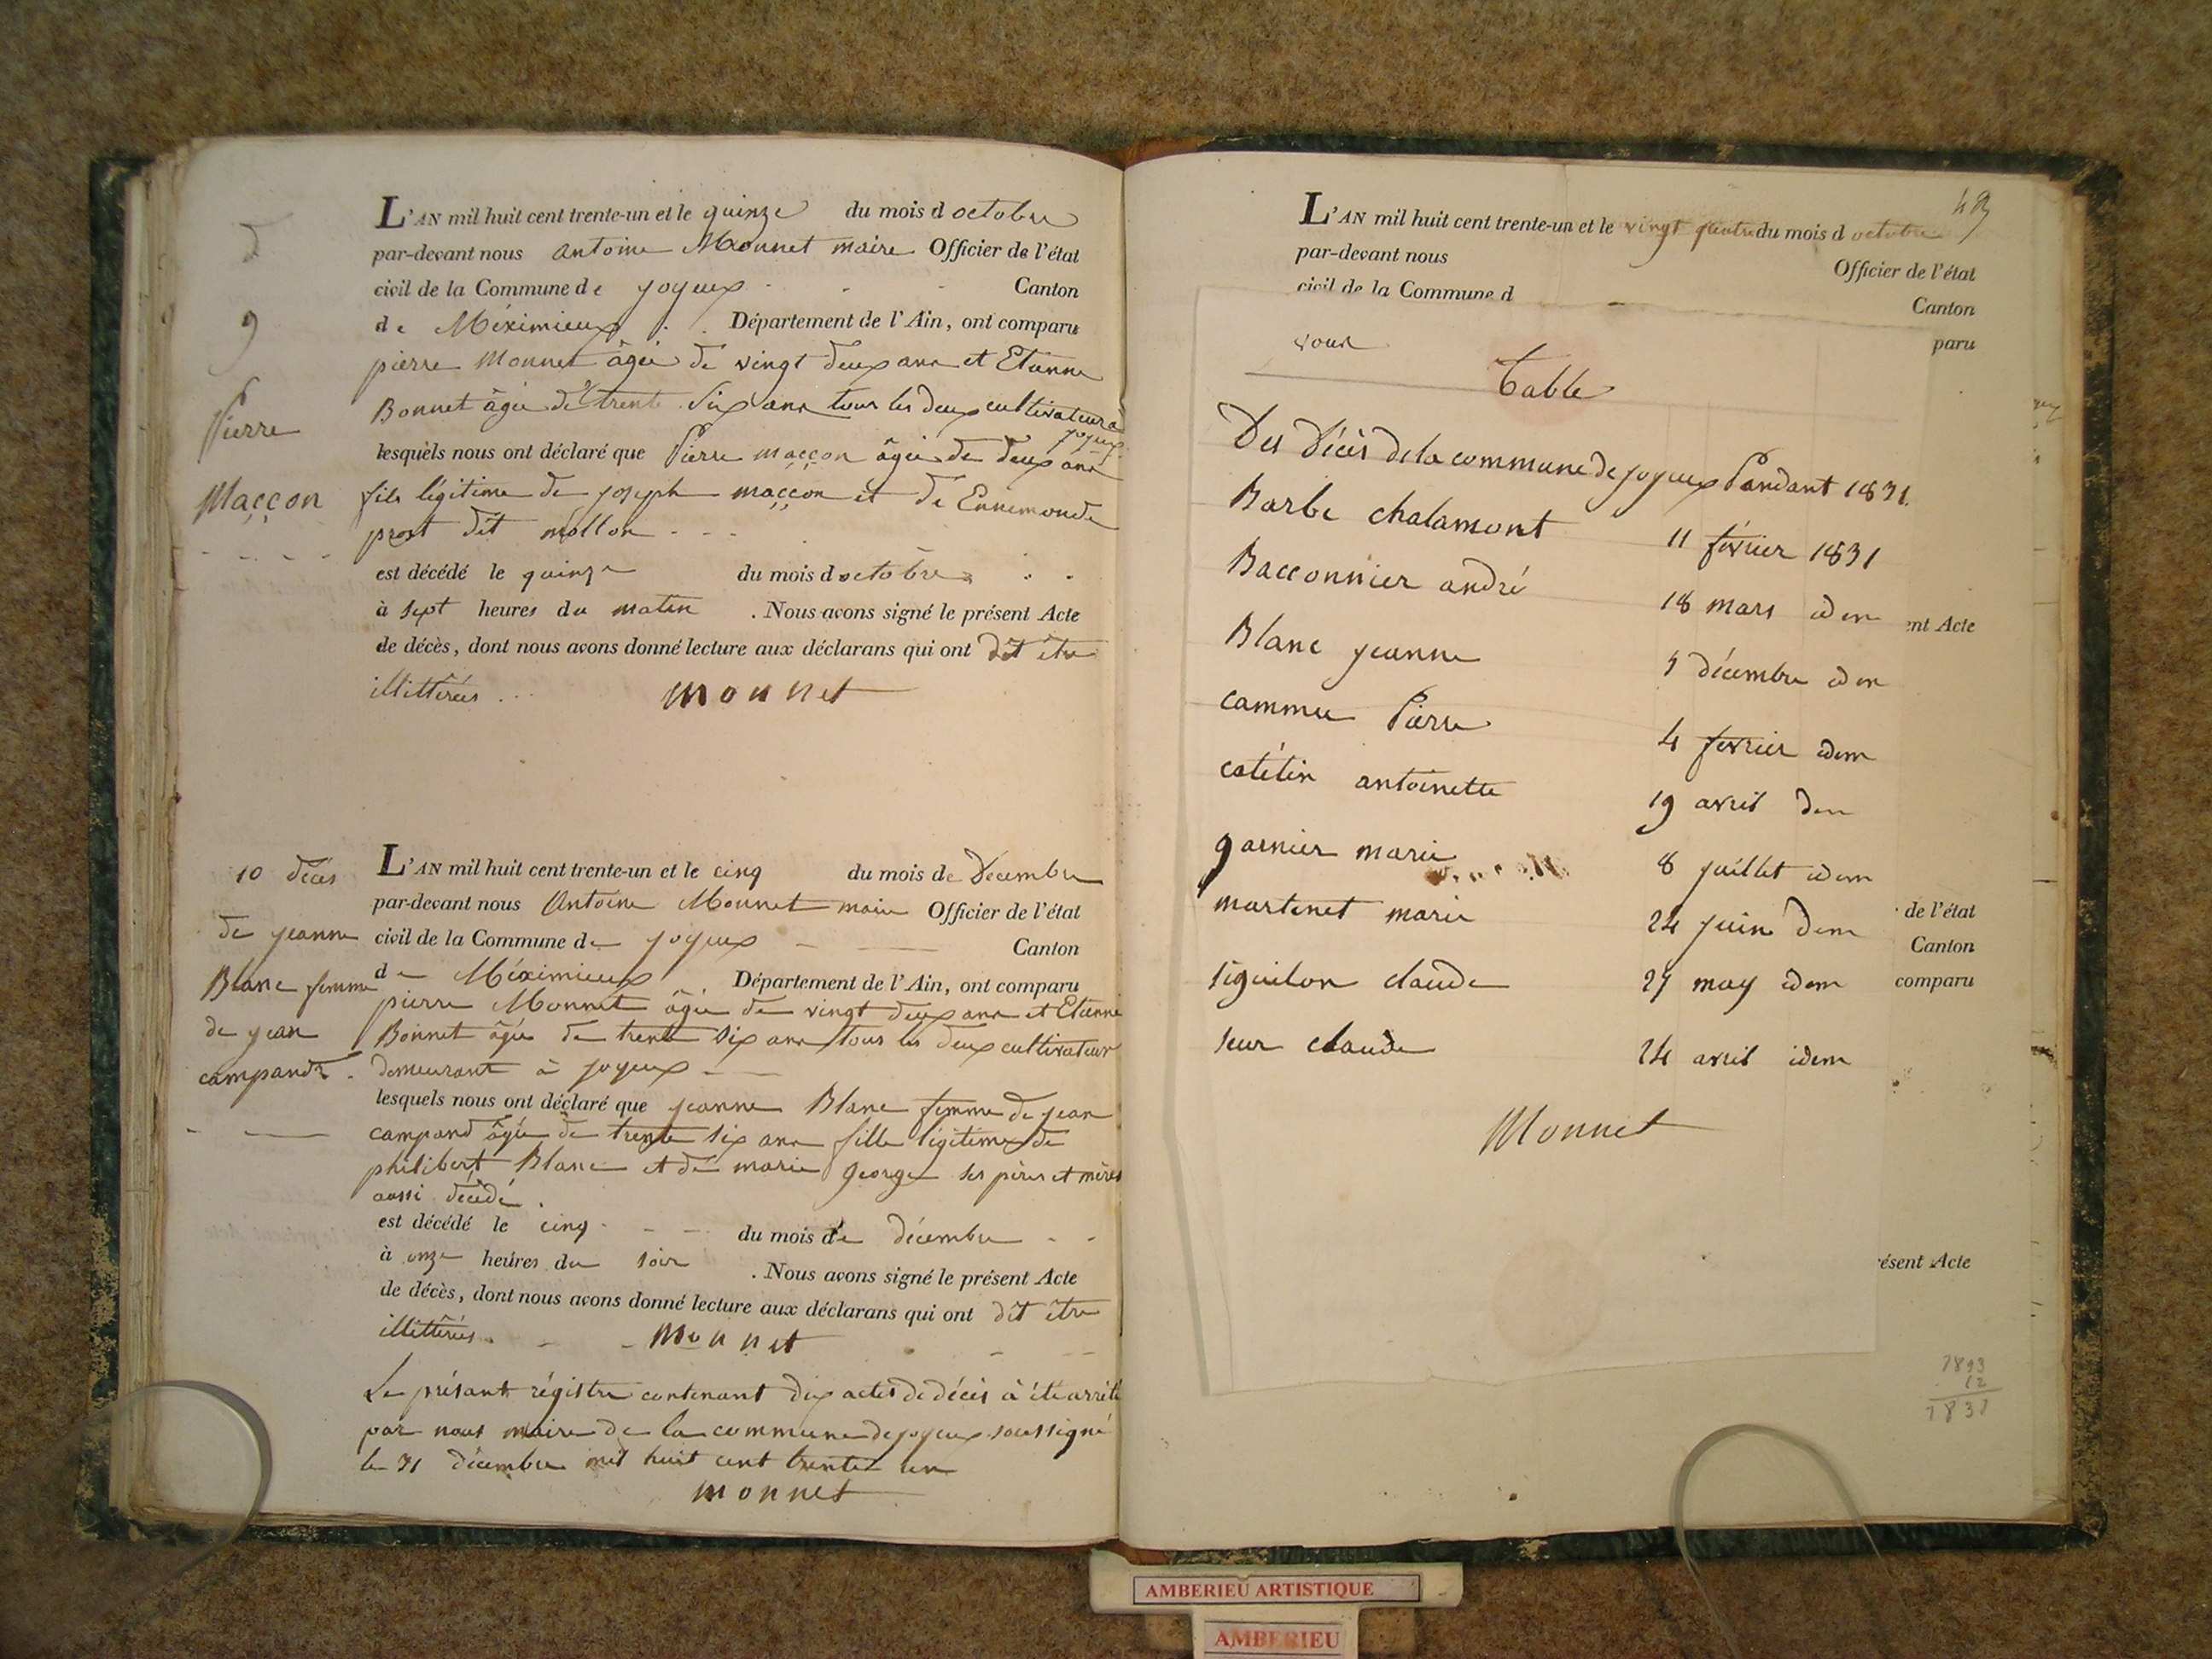 D
9
Pierre
Maççon
L'AN mil huit cent trente-un et le quinze du mois d octobre
par-devant nous antoine Monnet maire Officier de l'état
civil de la Commune de joyeux Canton
de Méximieux Département de l'Ain, ont comparu
pierre Monnet âgée de vingt deux ans et Etienne
Bonnet âgée de trente six ans tous les deux cultivateurs à
joyeux
lesquels nous ont déclaré que Pierre maççon âgée de deux ans
fils légitime de joseph maççon et de Ennemonde
prost dit mollon
est décédé le quinze du mois d octobre
à sept heures du matin . Nous avons signé le présent Acte
de décès, dont nous avons donné lecture aux déclarans qui ont dit être
illittérées
Monnet
10 décès
de jeanne
Blanc femme
de jean
campand
L'AN mil huit cent trente-un et le cinq du mois de Décembre
par-devant nous Antoine Monnet maire Officier de l'état
civil de la Commune de joyeux Canton
de Méximieux Département de l'Ain, ont comparu
pierre Monnet âgée de vingt deux ans et Etienne
Bonnet âgée de trente six ans tous les deux cultivateur
demeurant à joyeux
lesquels nous ont déclaré que jeanne Blanc femme de jean
campand âgée de trente six ans fille légitime de
philibert Blanc et de marie george ses pères et mères
aussi décédé
est décédé le cinq du mois de décembre
à onze heures du soir . Nous avons signé le présent Acte
de décès, dont nous avons donné lecture aux déclarans qui ont dit être
illittérées
Monnet
Le présant régistre contenant dix actes de décès à été arrêté
par nous maire de la commune de joyeux soussigné
le 31 décembre mil huit cent trente un
monnet
L'AN mil huit cent trente-un et le vingt quatre du mois d octobre
par-devant nous Officier de l'état
civil de la Commune d Canton
paru
Table
Des Décès de la commune de joyeux Pandant 1831.
Barbe chalamont 11 février 1831
Bacconnier andré 18 mars idem
ent Acte
Blanc jeanne 5 décembre idem
cammeu Pierre 4 fevrier idem
catétin antoinette 19 avril idem
garnier marie 8 juillet idem
martinet marie 24 juin idem
de l'état
Canton
siguilon claude 27 may idem
comparu
seur claude 24 avril idem
Monnet
résent Acte
12
AMBERIEU ARTISTIQUE
AMBERIEU